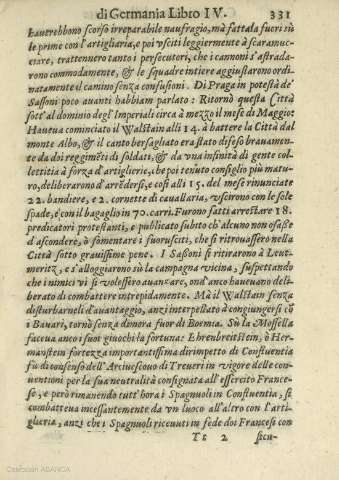 di Germania Libro IV. 331
haurebbono scorso irreparabile naufragio, mà fattala fuori sù
le prime con l'artigliaria, e poi vsciti leggiermente à scaramuc-
ciare, trattennero tanto i persecutori, che i cannoni s'astrada-
rono commodamente, & le squadre intiere aggiustarono ordi-
natamente il camino senza confusioni. Di Praga in potestà de'
Sassoni poco auanti habbiam parlato: Ritornò questa Città
sott'al dominio degl'Imperiali circa à mezzo il mese di Maggio:
Haueua cominciato il Walstain alli 14. à battere la Città dal
monte Albo, & il canto bersagliato era stato difeso brauamente
da doi reggimẽti di soldati, & da vna infinità de gente col-
lettitia à forza d'artiglierie, che poi tenuto consiglio più matu-
ro, deliberarono d'arrẽdersi, e così alli 15. del mese rinunciate
22. bandiere, e 2. cornette di cauallaria, vscirono con le sole
spade, e con il bagaglio in 70. carri. Furono fatti arrestare 18.
predicatori protestanti, e publicato subito ch'alcuno non osasse
d'ascondere, ò fomentare i fuorusciti, che si ritrouassero nella
Città sotto grauissime pene. I Sassoni si ritirarono à Leut-
meritz, e s'alloggiarono sù la campagna vicina, suspettando
che i nimici vi si volessero auanzare, ond'anco haueuano deli-
berato di combattere intrepidamente. Mà il Walstain senza
disturbarneli d'auantaggio, anzi interpellato à congiungersi cõ
i Bauari, tornò senza dimora fuor di Boemia. Sù la Mosella
faceua anco i suoi giuochi la fortuna: Ehrenbreitstein, ò Her-
manstein fortezza importantissima dirimpetto di Confluentia
fù di consenso dell'Arciuescouo di Treueri in vigore delle con-
uentioni per la sua neutralità consignata all'essercito France-
se, e però rimanendo tutt'hora i Spagnuoli in Confluentia, si
combatteua incessantemente da vn luoco all'altro con l'arti-
glieria, anzi che i Spagnoli riceuuti in fede doi Francesi con
Tt 2 sicu-
Colección ABANCA